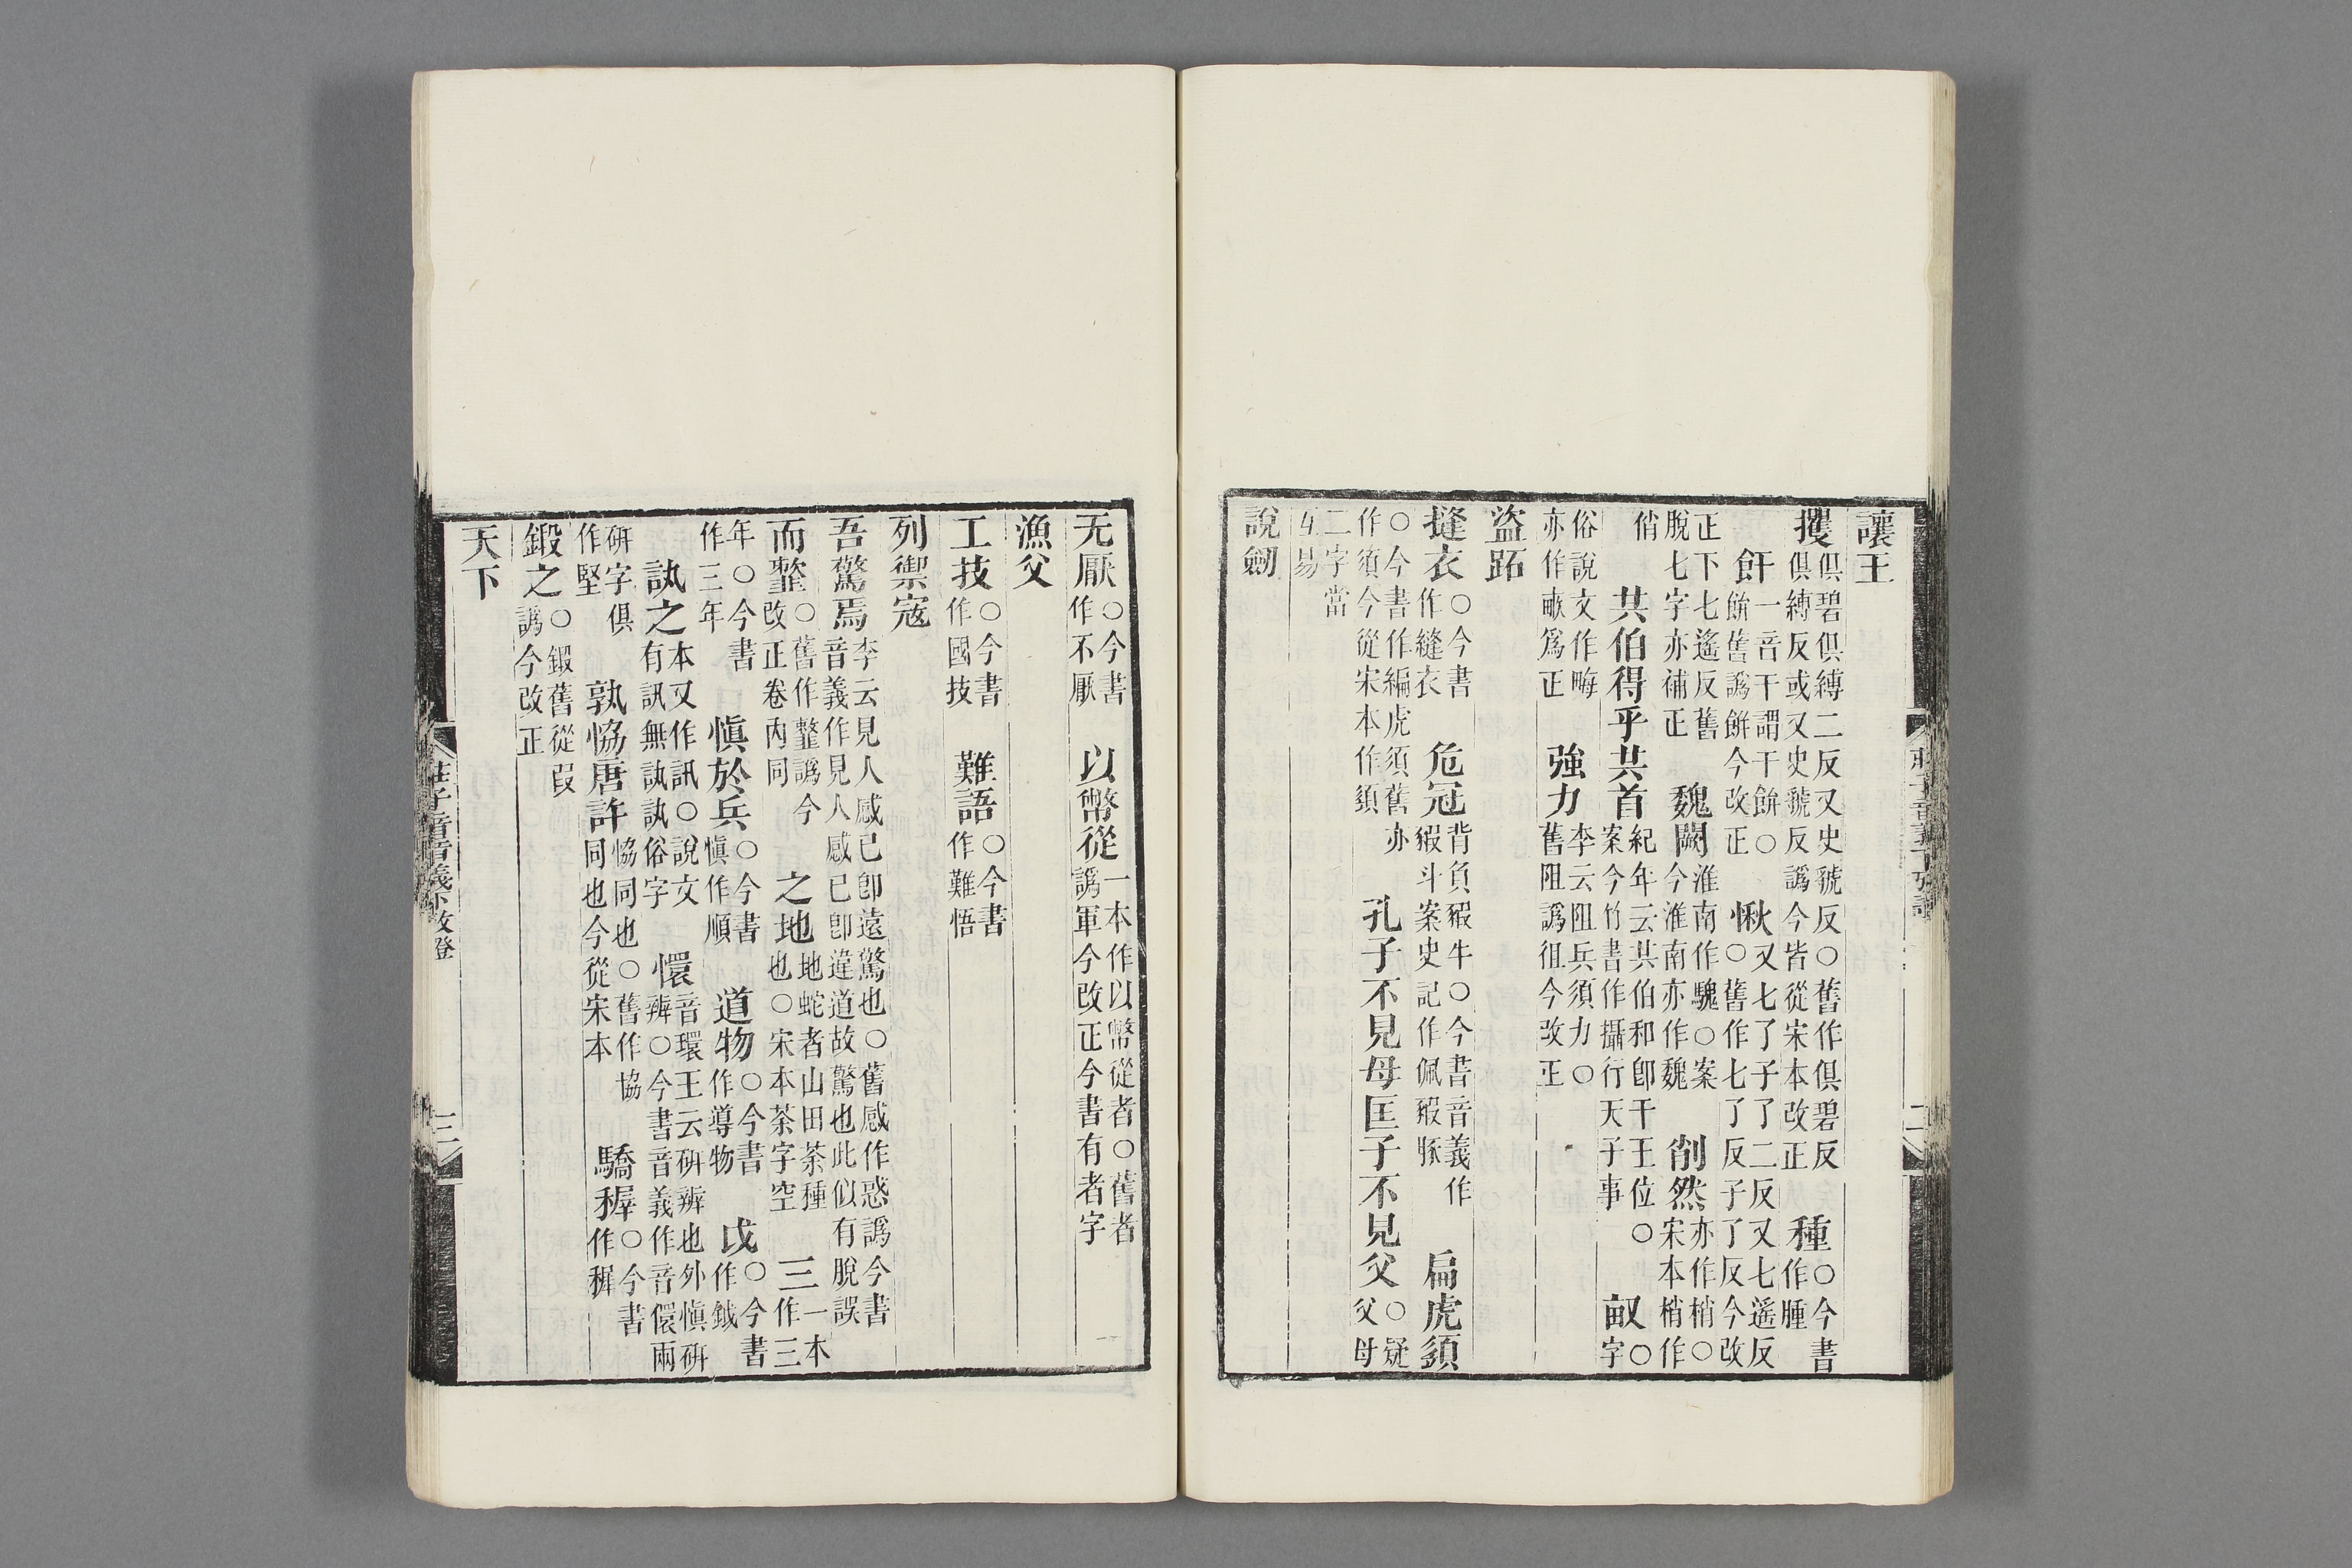 讓王
攫俱碧俱縛二反又史虢反○舊作俱碧反俱縛反或又史虢反譌今皆從宋本改正 種○今書作腫
飦一音干謂干餅○餅舊譌餠今改正 愀又七了子了二反又七遙反○舊作七了反子了反今改
正下七遙反舊脫七字亦補正 魏闕淮南作魏○案今淮南亦作魏 削然亦作梢○宋本梢作
俏 共伯得乎共首紀年云共伯和卽干王位○案今竹書作攝行天子事 畝○字
俗說文作畮亦作畞爲正 強力李云阻兵須力○舊阻譌徂今改正
盜跖
摓衣○今書作縫衣 危冠背負豭牛○今書音義作豭斗案史記作佩豭豚 扁虎須
○今書作編虎須舊亦作須今從宋本作須 孔子不見母匡子不見父○疑父母
二字當互易
說劒
无厭○今書作不厭 以幣從一本作以幣從者○舊者譌軍今改正今書有者字
漁父
工技○今書作國技 難語○今書作難悟
列禦寇
吾驚焉李云見人感已卽遠驚也○舊感作惑譌今書音義作見人感已卽違道故驚也此似有脫誤
而䪠○舊作䪡譌今改正卷內同 之地地蛇者山田茶種也○宋本茶字空 三一本作三
年○今書作三年 愼於兵○今書愼作順 道物○今書作導物 戉○今書作鉞
訙之本又作訊○說文有訊無訙訙俗字 懁音環王云硏辨也外愼硏辨○今書音義作音儇兩
硏字俱作堅 孰恊唐許恊同也○舊作協同也今從宋本 驕穉○今書作稺
鍛之○鍛舊從叚譌今改正
天下
莊子音義下攷證
二
莊子音義下攷證
三